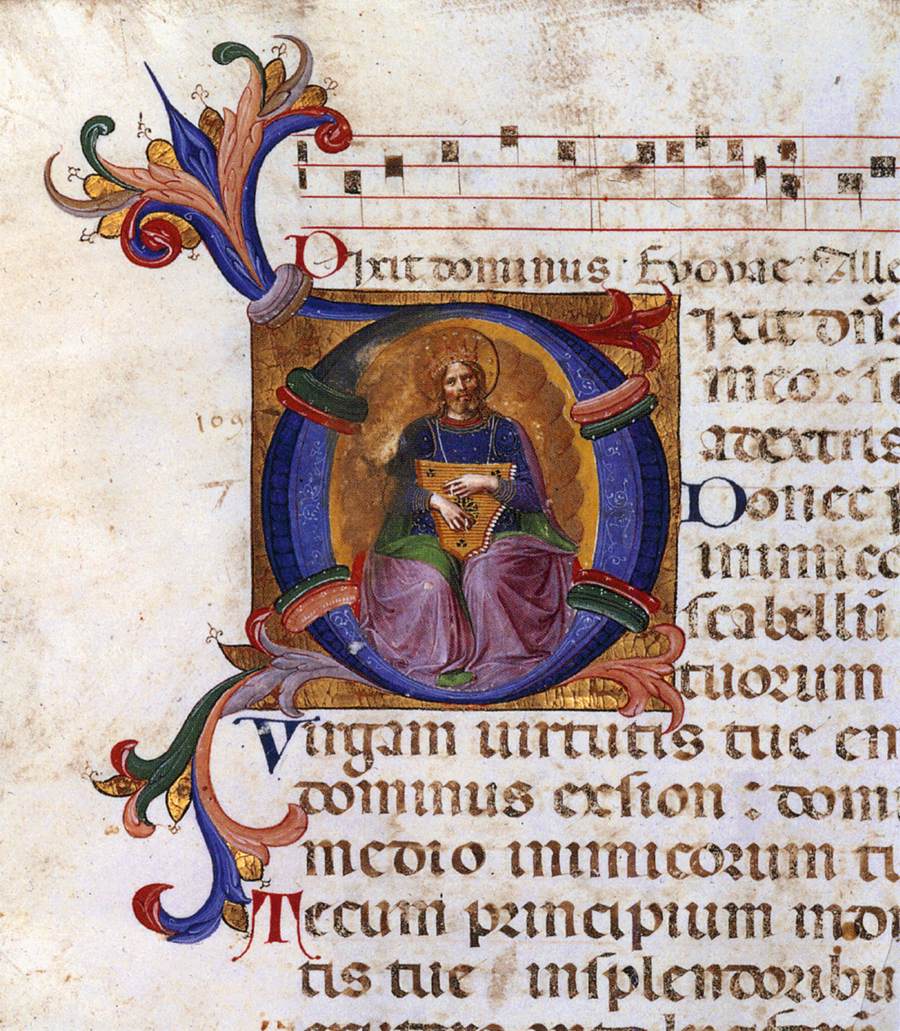 Dixit dominus : Evovae : Alle
Dixit dn̄s
meo : se
a dextris
Donec p
inimico
scabellū
tuorum
Virgam uirtutis tue em
dominus exsion : domi
medio inimicorum tu
Tecum principium indi
tis tue insplendoribu